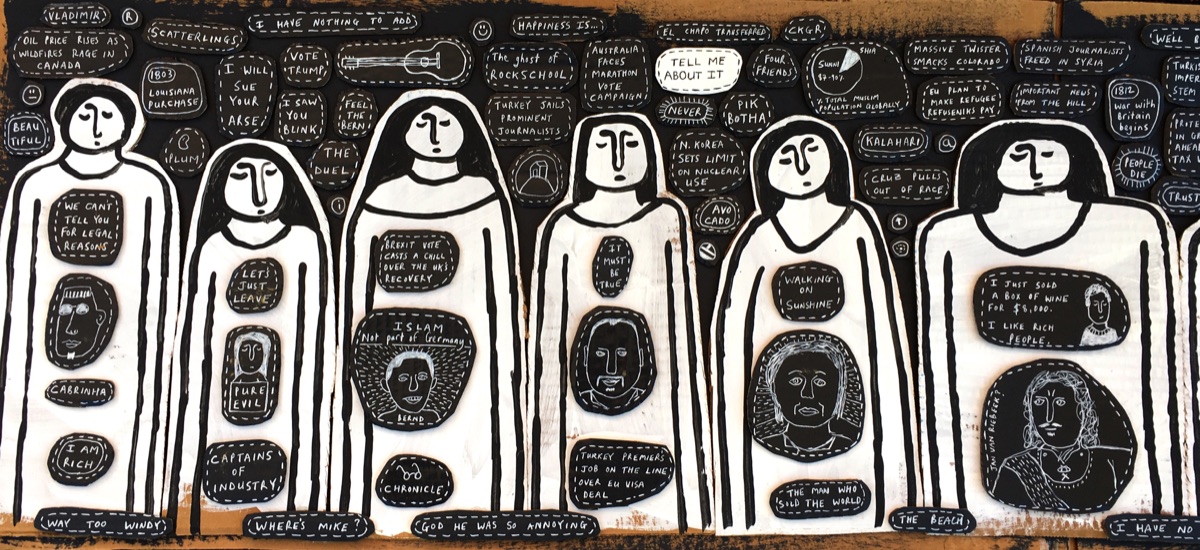 VLADIMIR
R
SCATTERLINGS
I HAVE NOTHING TO ADD
HAPPINESS IS...
EL CHAPO TRANSFERRED
CKGR
WELL
OIL PRICE RISES AS
WILDFIRES RAGE IN
CANADA
1803
LOUISIANA
PURCHASE
I WILL
SUE
YOUR
ARSE!
VOTE
TRUMP
The ghost of
ROCKSCHOOL
AUSTRALIA
FACES
MARATHON
VOTE
CAMPAIGN
TELL ME
ABOUT IT
FOUR
FRIENDS
SHIA
SUNNI
87-90%
% TOTAL MUSLIM
POPULATION GLOBALLY
MASSIVE TWISTER
SMACKS COLORADO
SPANISH JOURNALISTS
FREED IN SYRIA
I SAW
YOU
BLINK
FEEL
THE
BERN
TURKEY JAILS
PROMINENT
JOURNALISTS
NEVER
PIK
BOTHA
EU PLAN TO
MAKE REFUGEE
REFUSENIKS PAY
IMPORTANT NEWS
FROM THE HILL
1812
War with
Britain
begins
BEAU
TIFUL
B
(PLUM)
THE
DUEL
i
N. KOREA
SETS LIMIT
ON NUCLEAR
USE
KALAHARI
@
CRUZ PULLS
OUT OF RACE
PEOPLE
DIE
TRUST
AVO
CADO
WE CAN'T
TELL YOU
FOR LEGAL
REASONS
CABRINHA
I AM
RICH
LET'S
JUST
LEAVE
PURE
EVIL
CAPTAINS
OF
INDUSTRY
BREXIT VOTE
CASTS A CHILL
OVER THE UK'S
RECOVERY
ISLAM
Not part of Germany
BERND
CHRONICLE
IT
MUST
BE
TRUE
TURKEY PREMIER'S
JOB ON THE LINE
OVER EU VISA
DEAL
WALKING
ON
SUNSHINE
THE MAN WHO
SOLD THE WORLD
I JUST SOLD
A BOX OF WINE
FOR $8,000.
I LIKE RICH
PEOPLE.
JAN VAN RIEBEEK?
WAY TOO WINDY
WHERE'S MIKE?
GOD HE WAS SO ANNOYING
THE BEACH
I HAVE NO